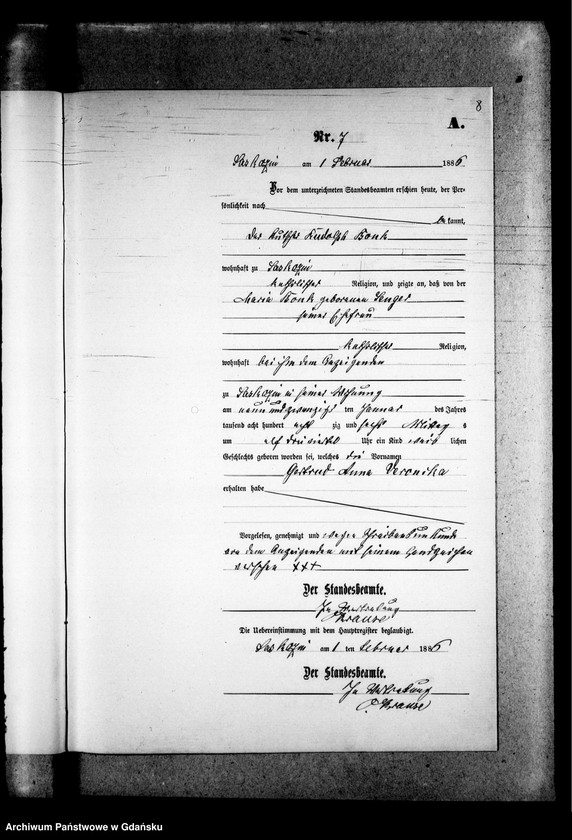 8
A.
Nr. 7
Saskozin am 1 Februar 1886
Vor dem unterzeichneten Standesbeamten erschien heute, der Per-
sönlichkeit nach
bekannt,
der Rudolph Bonk
wohnhaft zu Saskozin
katholischer Religion, und zeigte an, daß von der
Maria Bonk geborenen Senger
seiner Ehefrau
katholischer Religion,
wohnhaft bei ihm dem Anzeigenden
zu Saskozin in seiner Wohnung
am neunundzwanzigsten Januar des Jahres
tausend acht hundert acht zig und sechs Mittags
um elf dreiviertel Uhr ein Kind weib lichen
Geschlechts geboren worden sei, welches drei Vornamen
Gertrud Anna Veronika
erhalten habe
Vorgelesen, genehmigt und wegen Schreibensunkunde
von dem Anzeigenden mit seinem Handzeichen
versehen +++
Der Standesbeamte.
In Vertretung
Krause
Die Uebereinstimmung mit dem Hauptregister beglaubigt.
Saskozin am 1 ten Februar 1886
Der Standesbeamte.
In Vertretung
Krause
Archiwum Państwowe w Gdańsku